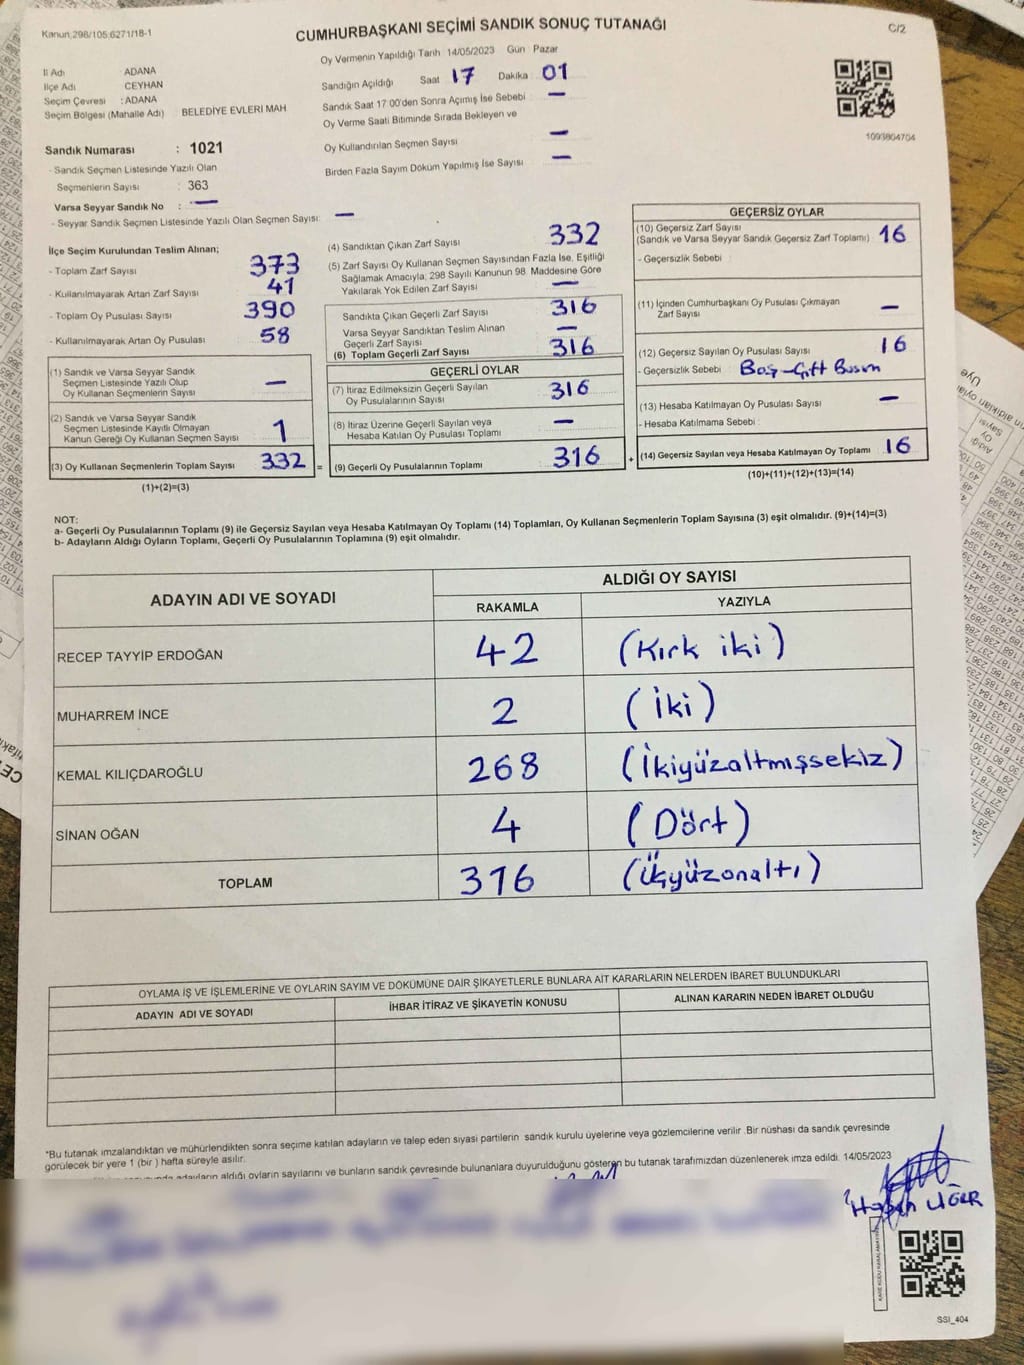 Kanun 298/105 6271/18-1
CUMHURBAŞKANI SEÇİMİ SANDIK SONUÇ TUTANAĞI
C/2
İl Adı ADANA
İlçe Adı CEYHAN
Seçim Çevresi : ADANA
Seçim Bölgesi (Mahalle Adı) : BELEDİYE EVLERİ MAH
Sandık Numarası : 1021
- Sandık Seçmen Listesinde Yazılı Olan
Seçmenlerin Sayısı : 363
Varsa Seyyar Sandık No : —
- Seyyar Sandık Seçmen Listesinde Yazılı Olan Seçmen Sayısı: —
Oy Vermenin Yapıldığı Tarih 14/05/2023 Gün Pazar
Sandığın Açıldığı Saat 17 Dakika 01
Sandık Saat 17:00'den Sonra Açımış İse Sebebi —
Oy Verme Saati Bitiminde Sırada Bekleyen ve
Oy Kullandırılan Seçmen Sayısı —
Birden Fazla Sayım Döküm Yapılmış İse Sayısı —
1093804704
İlçe Seçim Kurulundan Teslim Alınan;
- Toplam Zarf Sayısı 373
- Kullanılmayarak Artan Zarf Sayısı 41
- Toplam Oy Pusulası Sayısı 390
- Kullanılmayarak Artan Oy Pusulası 58
(1) Sandık ve Varsa Seyyar Sandık
Seçmen Listesinde Yazılı Olup
Oy Kullanan Seçmenlerin Sayısı —
(2) Sandık ve Varsa Seyyar Sandık
Seçmen Listesinde Kayıtlı Olmayan
Kanun Gereği Oy Kullanan Seçmen Sayısı 1
(3) Oy Kullanan Seçmenlerin Toplam Sayısı 332 =
(1)+(2)=(3)
(4) Sandıktan Çıkan Zarf Sayısı 332
(5) Zarf Sayısı Oy Kullanan Seçmen Sayısından Fazla İse, Eşitliği
Sağlamak Amacıyla; 298 Sayılı Kanunun 98. Maddesine Göre
Yakılarak Yok Edilen Zarf Sayısı —
Sandıkta Çıkan Geçerli Zarf Sayısı 316
Varsa Seyyar Sandıktan Teslim Alınan
Geçerli Zarf Sayısı —
(6) Toplam Geçerli Zarf Sayısı 316
GEÇERLİ OYLAR
(7) İtiraz Edilmeksizin Geçerli Sayılan
Oy Pusulalarının Sayısı 316
(8) İtiraz Üzerine Geçerli Sayılan veya
Hesaba Katılan Oy Pusulası Toplamı —
(9) Geçerli Oy Pusulalarının Toplamı 316 +
GEÇERSİZ OYLAR
(10) Geçersiz Zarf Sayısı
(Sandık ve Varsa Seyyar Sandık Geçersiz Zarf Toplamı) 16
- Geçersizlik Sebebi :
(11) İçinden Cumhurbaşkanı Oy Pusulası Çıkmayan
Zarf Sayısı —
(12) Geçersiz Sayılan Oy Pusulası Sayısı 16
- Geçersizlik Sebebi : Boş-Çift Basım
(13) Hesaba Katılmayan Oy Pusulası Sayısı —
- Hesaba Katılmama Sebebi :
(14) Geçersiz Sayılan veya Hesaba Katılmayan Oy Toplamı 16
(10)+(11)+(12)+(13)=(14)
NOT:
a- Geçerli Oy Pusulalarının Toplamı (9) ile Geçersiz Sayılan veya Hesaba Katılmayan Oy Toplamı (14) Toplamları, Oy Kullanan Seçmenlerin Toplam Sayısına (3) eşit olmalıdır. (9)+(14)=(3)
b- Adayların Aldığı Oyların Toplamı, Geçerli Oy Pusulalarının Toplamına (9) eşit olmalıdır.
ADAYIN ADI VE SOYADI ALDIĞI OY SAYISI
RAKAMLA YAZIYLA
RECEP TAYYİP ERDOĞAN 42 (Kırk iki)
MUHARREM İNCE 2 (İki)
KEMAL KILIÇDAROĞLU 268 (İkiyüzaltmışsekiz)
SİNAN OĞAN 4 (Dört)
TOPLAM 316 (Üçyüzonaltı)
OYLAMA İŞ VE İŞLEMLERİNE VE OYLARIN SAYIM VE DÖKÜMÜNE DAİR ŞİKAYETLERLE BUNLARA AİT KARARLARIN NELERDEN İBARET BULUNDUKLARI
ADAYIN ADI VE SOYADI İHBAR İTİRAZ VE ŞİKAYETİN KONUSU ALINAN KARARIN NEDEN İBARET OLDUĞU
*Bu tutanak imzalandıktan ve mühürlendikten sonra seçime katılan adayların ve talep eden siyasi partilerin sandık kurulu üyelerine veya gözlemcilerine verilir .Bir nüshası da sandık çevresinde
görülecek bir yere 1 (bir ) hafta süreyle asılır.
adayların aldığı oyların sayılarını ve bunların sandık çevresinde bulunanlara duyurulduğunu gösteren bu tutanak tarafımızdan düzenlenerek imza edildi. 14/05/2023
UĞUR
SSI_404